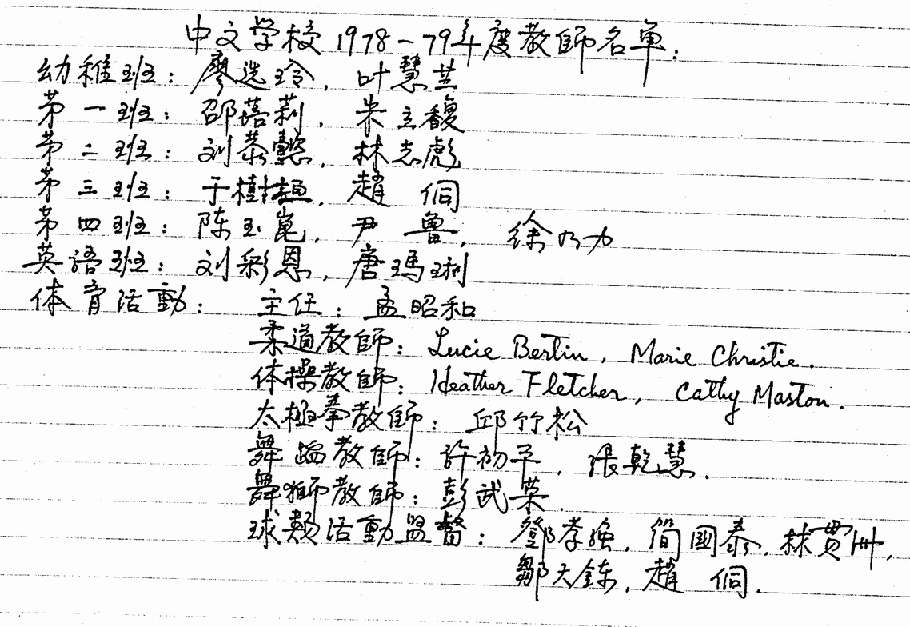 中文学校1978-79年度教師名单:
幼稚班: 廖选玲, 叶慧芸
第一班: 邵蓓莉, 朱立馥
第二班: 刘恭懿, 林志彪
第三班: 于樹桓, 趙 侗
第四班: 陈玉崑, 尹 鲁, 徐乃力
英語班: 刘彩恩, 唐瑪琍
体育活動: 主任: 孟昭和
柔道教師: Lucie Bertin, Marie Christie.
体操教師: Heather Fletcher, Cathy Maston.
太極拳教師: 邱竹松
舞蹈教師: 許初平, 張乾慧.
舞獅教師: 彭武荣.
球類活動监督: 鄧孝強, 简國泰, 林贯卌,
鄒大錬, 趙 侗.